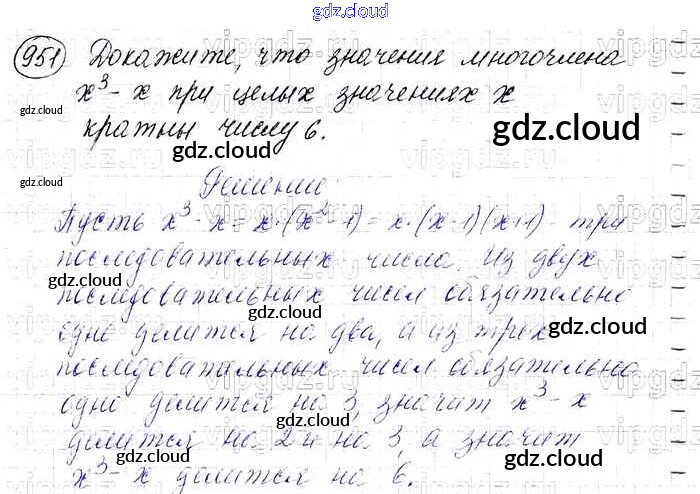 gdz.cloud
951 Докажите, что значения многочлена
x³ - x при целых значениях x
gdz.cloud
кратны числу 6. gdz.cloud
gdz.cloud
gdz.cloud Решение:
Пусть x³ - x = x·(x² - 1) = x·(x-1)(x+1) - три
последовательных числа. Из двух
gdz.cloud gdz.cloud
последовательных чисел обязательно
одно делится на два, а из трех gdz.cloud
последовательных чисел обязательно
одно делится на 3, значит x³ - x
делится на 2 и на 3, а значит
gdz.cloud gdz.cloud
x³ - x делится на 6.